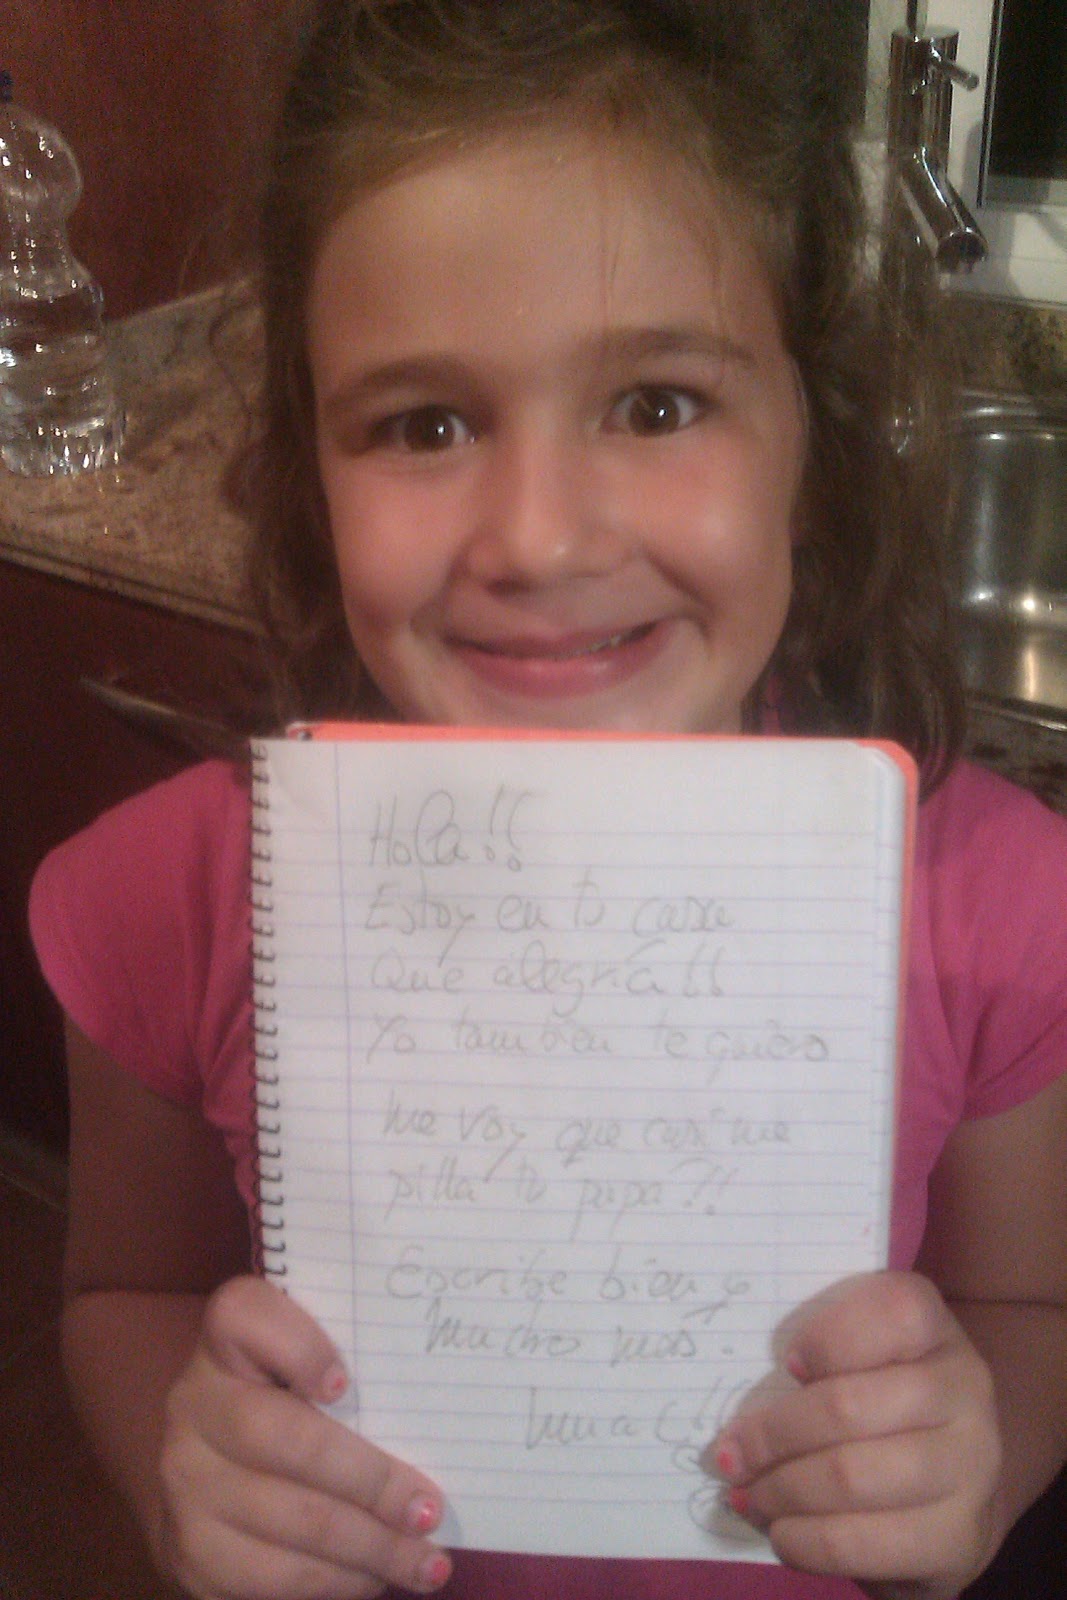 Hola!!
Estoy en tu casa
Que alegría!!
Yo tambien te quiero
Me voy que casi me
pilla tu papa?!!
Escribe bien y
mucho mas.